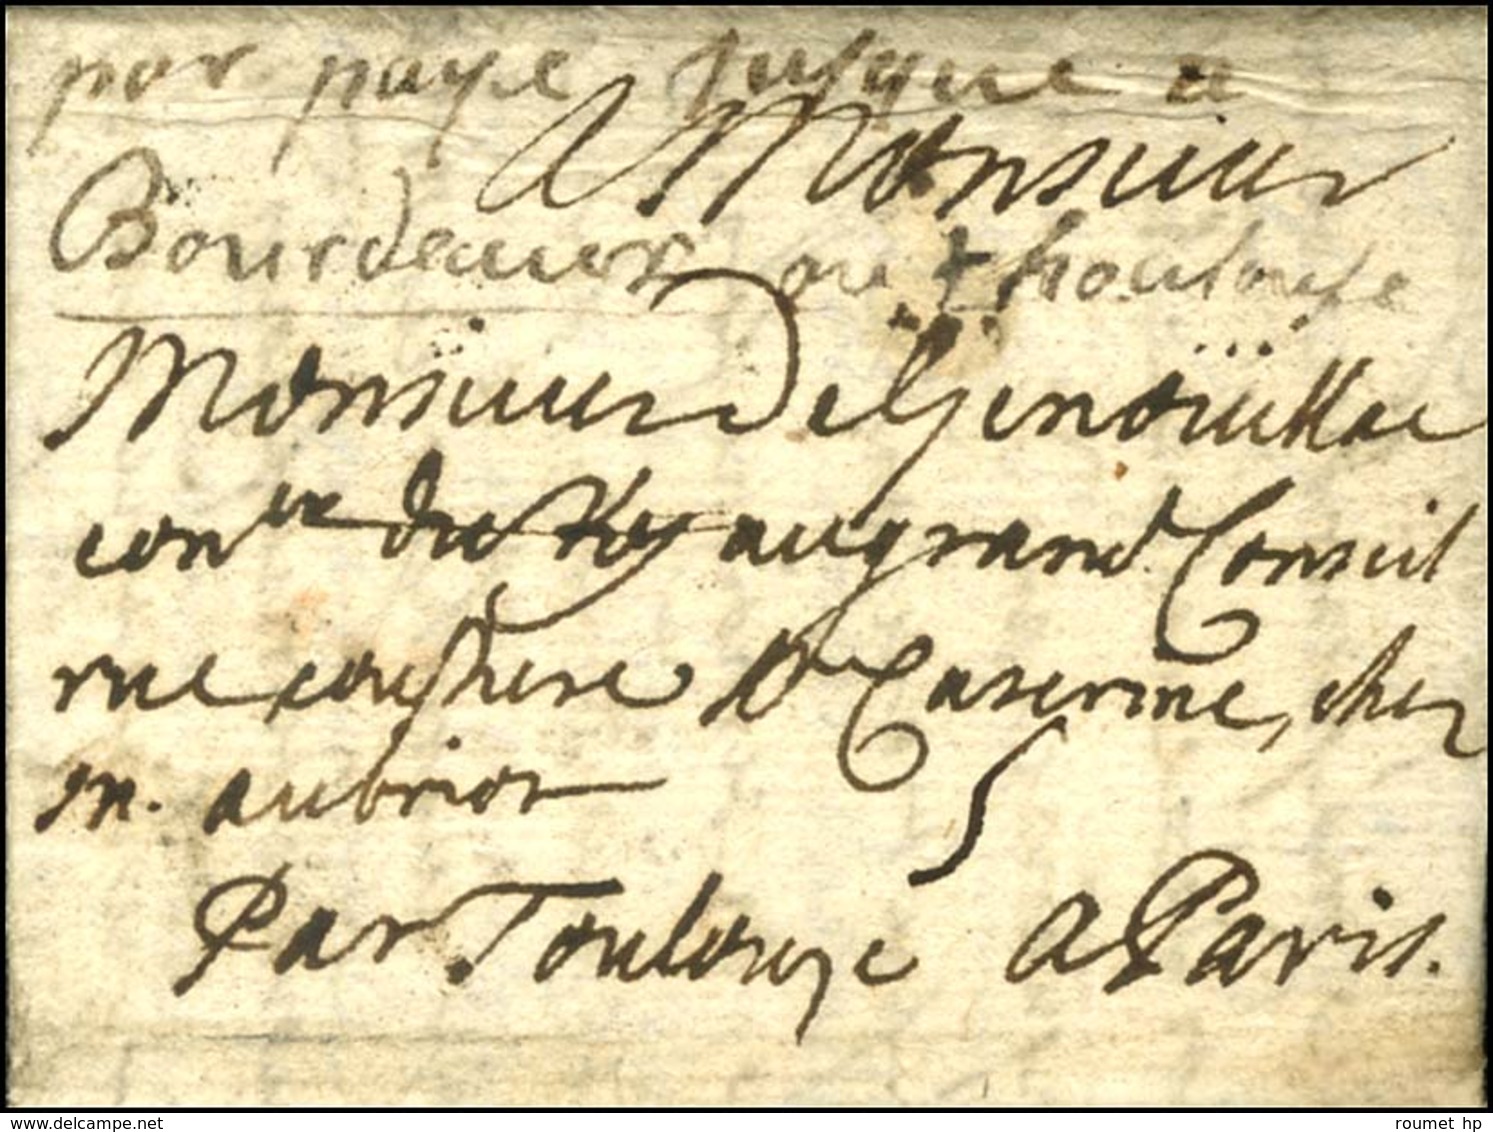 por paye Jusque a
A Monsieur
Bourdeaux ou thoulouse
Monsieur De Genoüillac
con.er du Roy au grand Conseil
rue St Caserine, chez
m. aubriot
5
Par Toulouze a Paris.
roumet hp